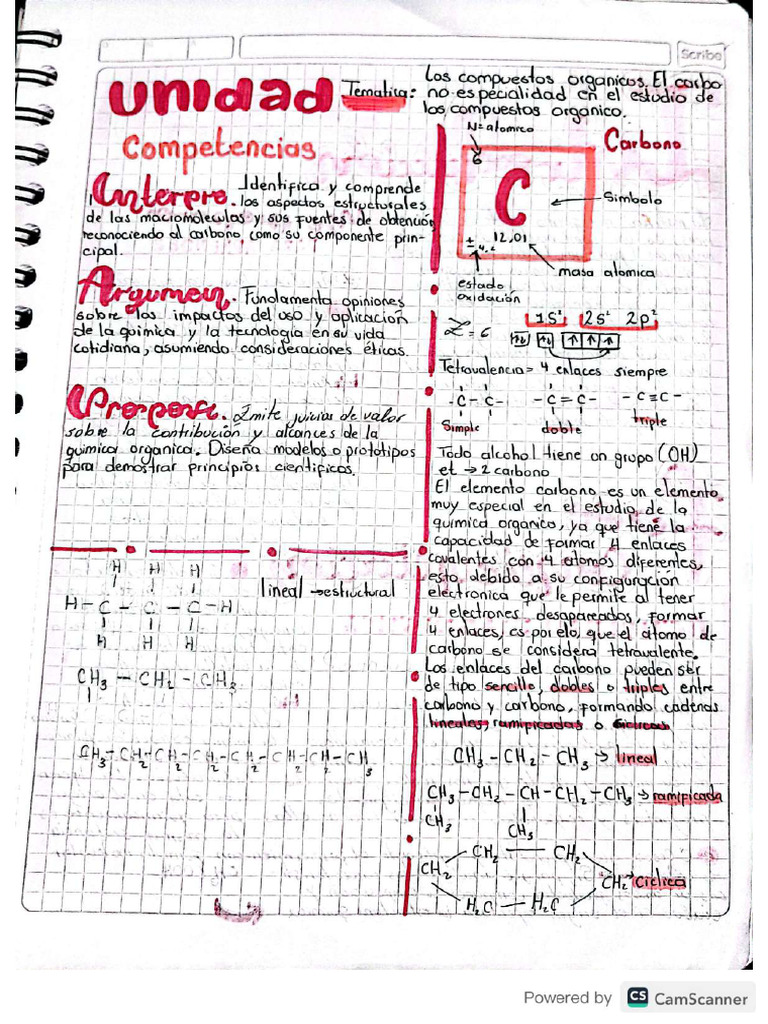 Scribe
Unidad
Tematica: Los compuestos organicos. El carbo
no especialidad en el estudio de
los compuestos organico.
Competencias
Interpre. Identifica y comprende
los aspectos estructurales
de las macromoleculas y sus fuentes de obtención
reconociendo al carbono como su componente prin-
cipal.
Argumen. Fundamenta opiniones
sobre los impactos del uso y aplicación
de la quimica y la tecnología en su vida
cotidiana, asumiendo consideraciones éticas.
Emite juicios de valor
sobre la contribución y alcances de la
quimica organica. Diseña modelos o prototipos
para demostrar principios cientificos.
H H H
H-C-C-C-H
H H H
lineal → estructural
CH3-CH2-CH3
CH3-CH2-CH2-CH2-CH2-CH2-CH2-CH3
N=atomico
Carbono
6
C
Simbolo
12,01
±4,2
masa atomica
estado
oxidación
Z=6
1s² 2s² 2p²
↑↓ ↑↓ ↑ ↑ ↑
Tetravalencia= 4 enlaces siempre
-C-C- -C=C- -C≡C-
Simple doble triple
Todo alcohol tiene un grupo (OH)
et → 2 carbono
El elemento carbono es un elemento
muy especial en el estudio de la
quimica organica, ya que tiene la
capacidad de formar 4 enlaces
covalentes con 4 atomos diferentes,
esto debido a su configuración
electronica que le permite al tener
4 electrones desapareados, formar
4 enlaces, es por elo, que el átomo de
carbono se considera tetravalente.
Los enlaces del carbono pueden ser
de tipo sencillo, dobles o triples entre
carbono y carbono, formando cadenas
lineales, ramipicadas o ciclicas
CH3-CH2-CH3 → lineal
CH3-CH2-CH-CH2-CH3 → ramipicada
CH3 CH3
CH2 — CH2
CH2 CH2 → Ciclica
H2C — H2C
Powered by CS CamScanner